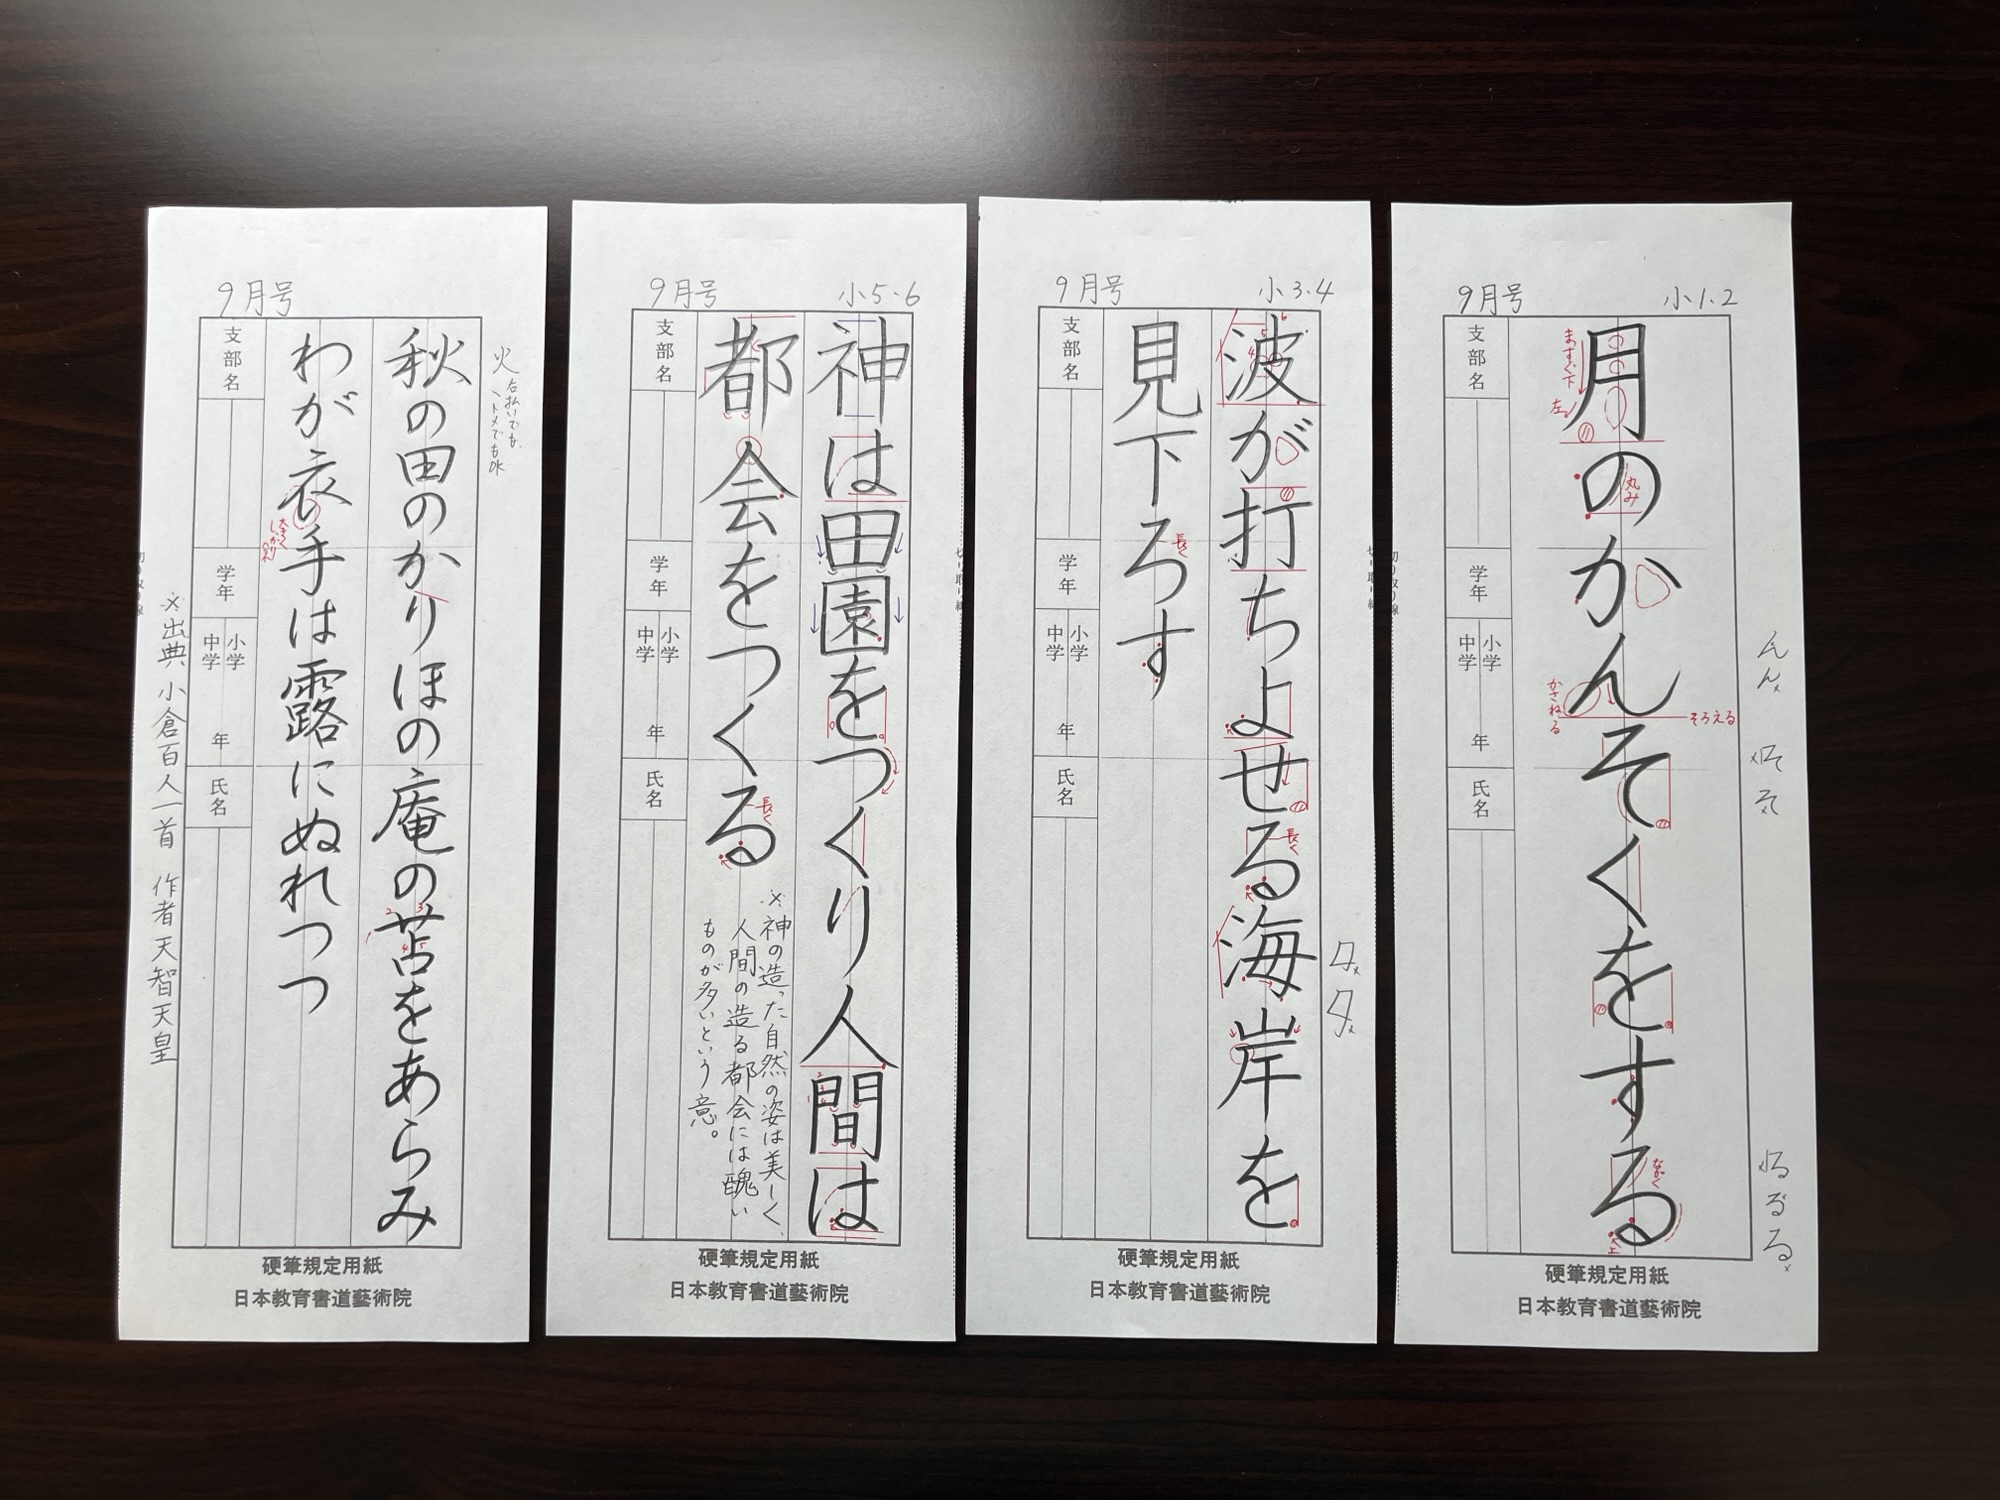 9月号
小1.2
月のかんそくをする
ますぐ下
左
丸み
かさねる
そろえる
ながく
上
支部名
学年
小学
中学
年
氏名
硬筆規定用紙
日本教育書道藝術院
9月号
小3.4
波が打ちよせる海岸を
見下ろす
長く
長く
支部名
学年
小学
中学
年
氏名
硬筆規定用紙
日本教育書道藝術院
9月号
小5.6
神は田園をつくり人間は
都会をつくる
長く
※神の造った自然の姿は美しく、
人間の造る都会には醜い
ものが多いという意。
支部名
学年
小学
中学
年
氏名
硬筆規定用紙
日本教育書道藝術院
9月号
火
右払いでも、
トメでもOK
秋の田のかりほの庵の苫をあらみ
わが衣手は露にぬれつつ
支部名
学年
小学
中学
年
氏名
※出典 小倉百人一首 作者天智天皇
硬筆規定用紙
日本教育書道藝術院